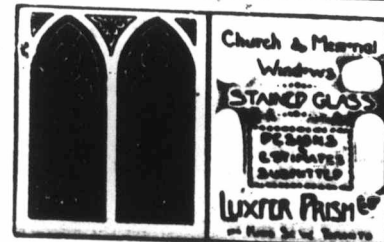 Church & Memorial
Windows
STAINED GLASS
DESIGNS
ESTIMATES
SUBMITTED
LUXFER PRISM Co
King St W. Toronto